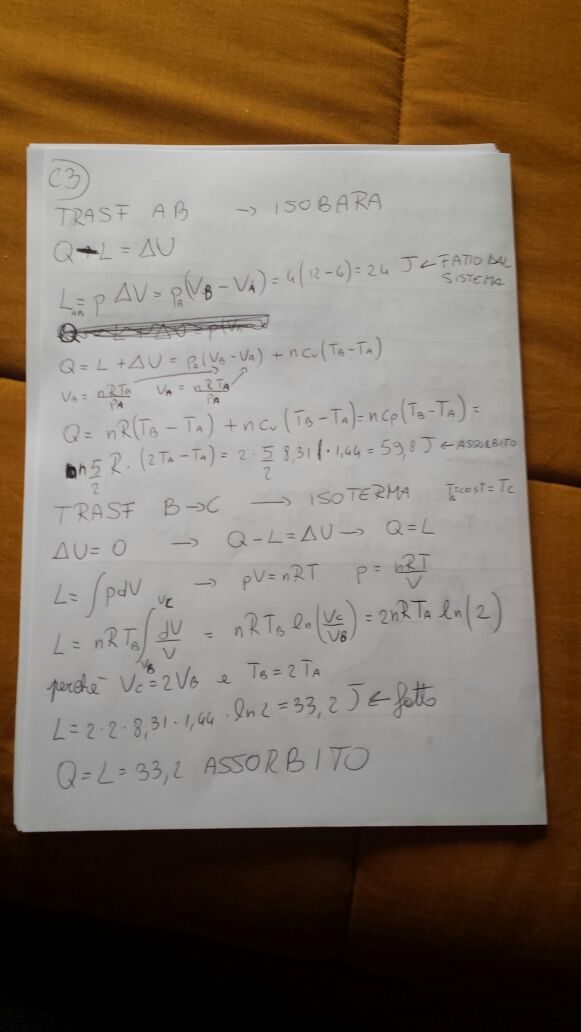 C3
TRASF AB → ISOBARA
Q - L = ΔU
L_AB = p ΔV = p_A (V_B - V_A) = 4(12-6) = 24 J ← FATTO DAL SISTEMA
Q = L + ΔU = p_A (V_B - V_A) + n c_v (T_B - T_A)
V_B = nRT_B/p_A V_A = nRT_A/p_A
Q = nR(T_B - T_A) + n c_v (T_B - T_A) = n c_p (T_B - T_A) =
n 5/2 R · (2T_A - T_A) = 2 · 5/2 8,31 · 1,44 = 59,8 J ← ASSORBITO
TRASF B→C → ISOTERMA T_B = cost = T_C
ΔU = 0 → Q - L = ΔU → Q = L
L = ∫ p dV → pV = nRT p = nRT/V
L = nRT_B ∫_{V_B}^{V_C} dV/V = nRT_B ln(V_C/V_B) = 2nRT_A ln(2)
perché V_C = 2V_B e T_B = 2T_A
L = 2 · 2 · 8,31 · 1,44 · ln2 = 33,2 J ← fatto
Q = L = 33,2 ASSORBITO